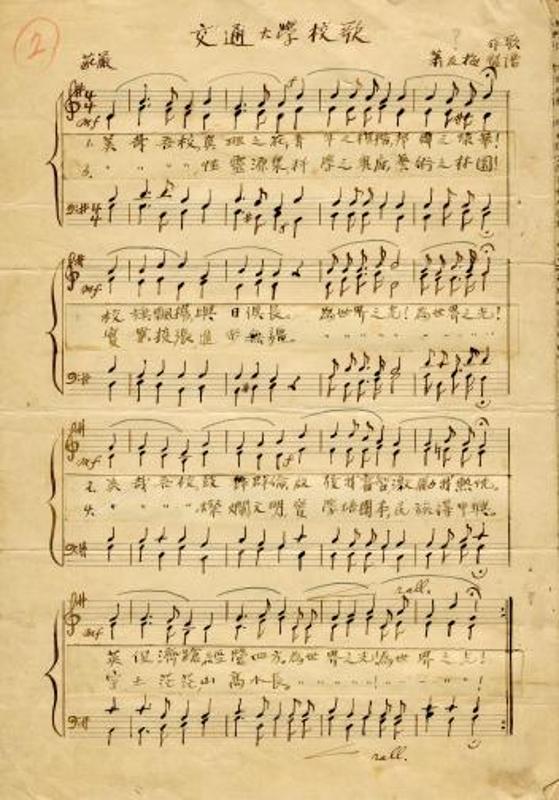 2
交通大學校歌
莊嚴
? 作歌
蕭友梅 製譜
4/4
mf
1. 美哉吾校,真理之花,青年之楷模,邦國之懷華!
3. 〃 〃 〃 〃 性靈源泉,科學之 藝術之林園!
4/4
mf
校旗飄揚,與日俱長。為世界之光!為世界之光!
實業 進 無疆。
mf
2. 美哉吾校,鼓舞群倫,啟 我 智 激勵我熱忱。
4. 〃 〃 〃 〃 燦爛文明,實學培國本,民族得中興。
rall.
mf
英俊濟蹌,經營四方。為世界之光!為世界之光!
宇土茫茫,山高水長。
rall.